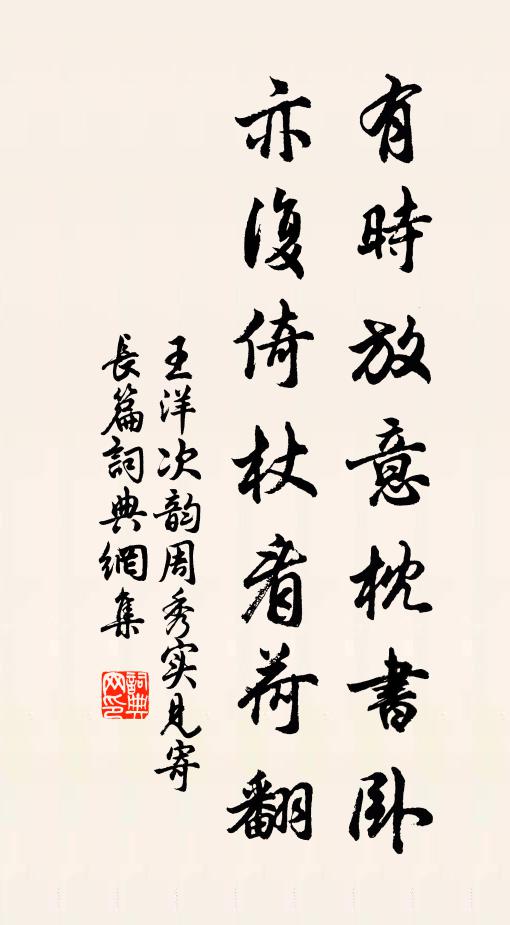 有時放意枕書卧
亦復倚杖看荷翻
王洋次韵周秀实见寄
長篇詞典網集
詞典网印